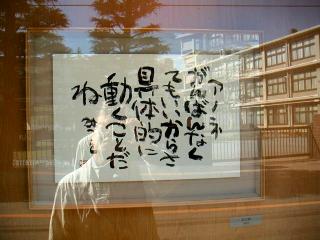 アノネ
がんばんなく
てもいいからさ
具体的に
動くことだ
ね